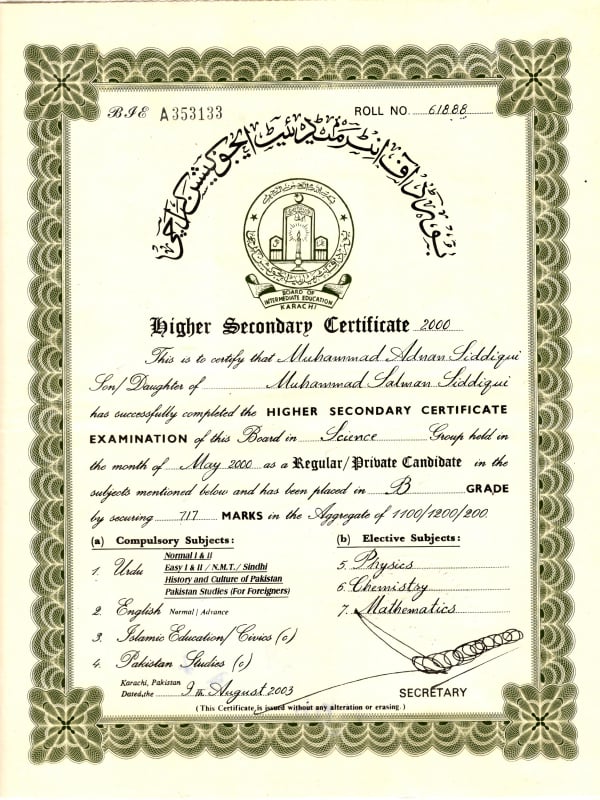 BIE A353133
ROLL NO. 61888
بورڈ آف انٹرمیڈیئیٹ ایجوکیشن کراچی
BOARD OF
INTERMEDIATE EDUCATION
KARACHI
Higher Secondary Certificate 2000
This is to certify that Muhammad Adnan Siddiqui
Son/Daughter of Muhammad Salman Siddiqui
has successfully completed the HIGHER SECONDARY CERTIFICATE
EXAMINATION of this Board in Science Group held in
the month of May 2000 as a Regular/Private Candidate in the
subjects mentioned below and has been placed in B GRADE
by securing 717 MARKS in the Aggregate of 1100/1200/200.
(a) Compulsory Subjects:
1. Urdu
Normal I & II
Easy I & II / N.M.T. / Sindhi
History and Culture of Pakistan
Pakistan Studies (For Foreigners)
2. English Normal / Advance
3. Islamic Education/Civics (c)
4. Pakistan Studies (c)
(b) Elective Subjects:
5. Physics
6. Chemistry
7. Mathematics
Karachi, Pakistan
Dated, the 9th August 2003
SECRETARY
(This Certificate is issued without any alteration or erasing.)